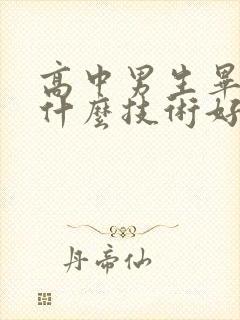 高中男生畢
什麼技術好
丹帝仙